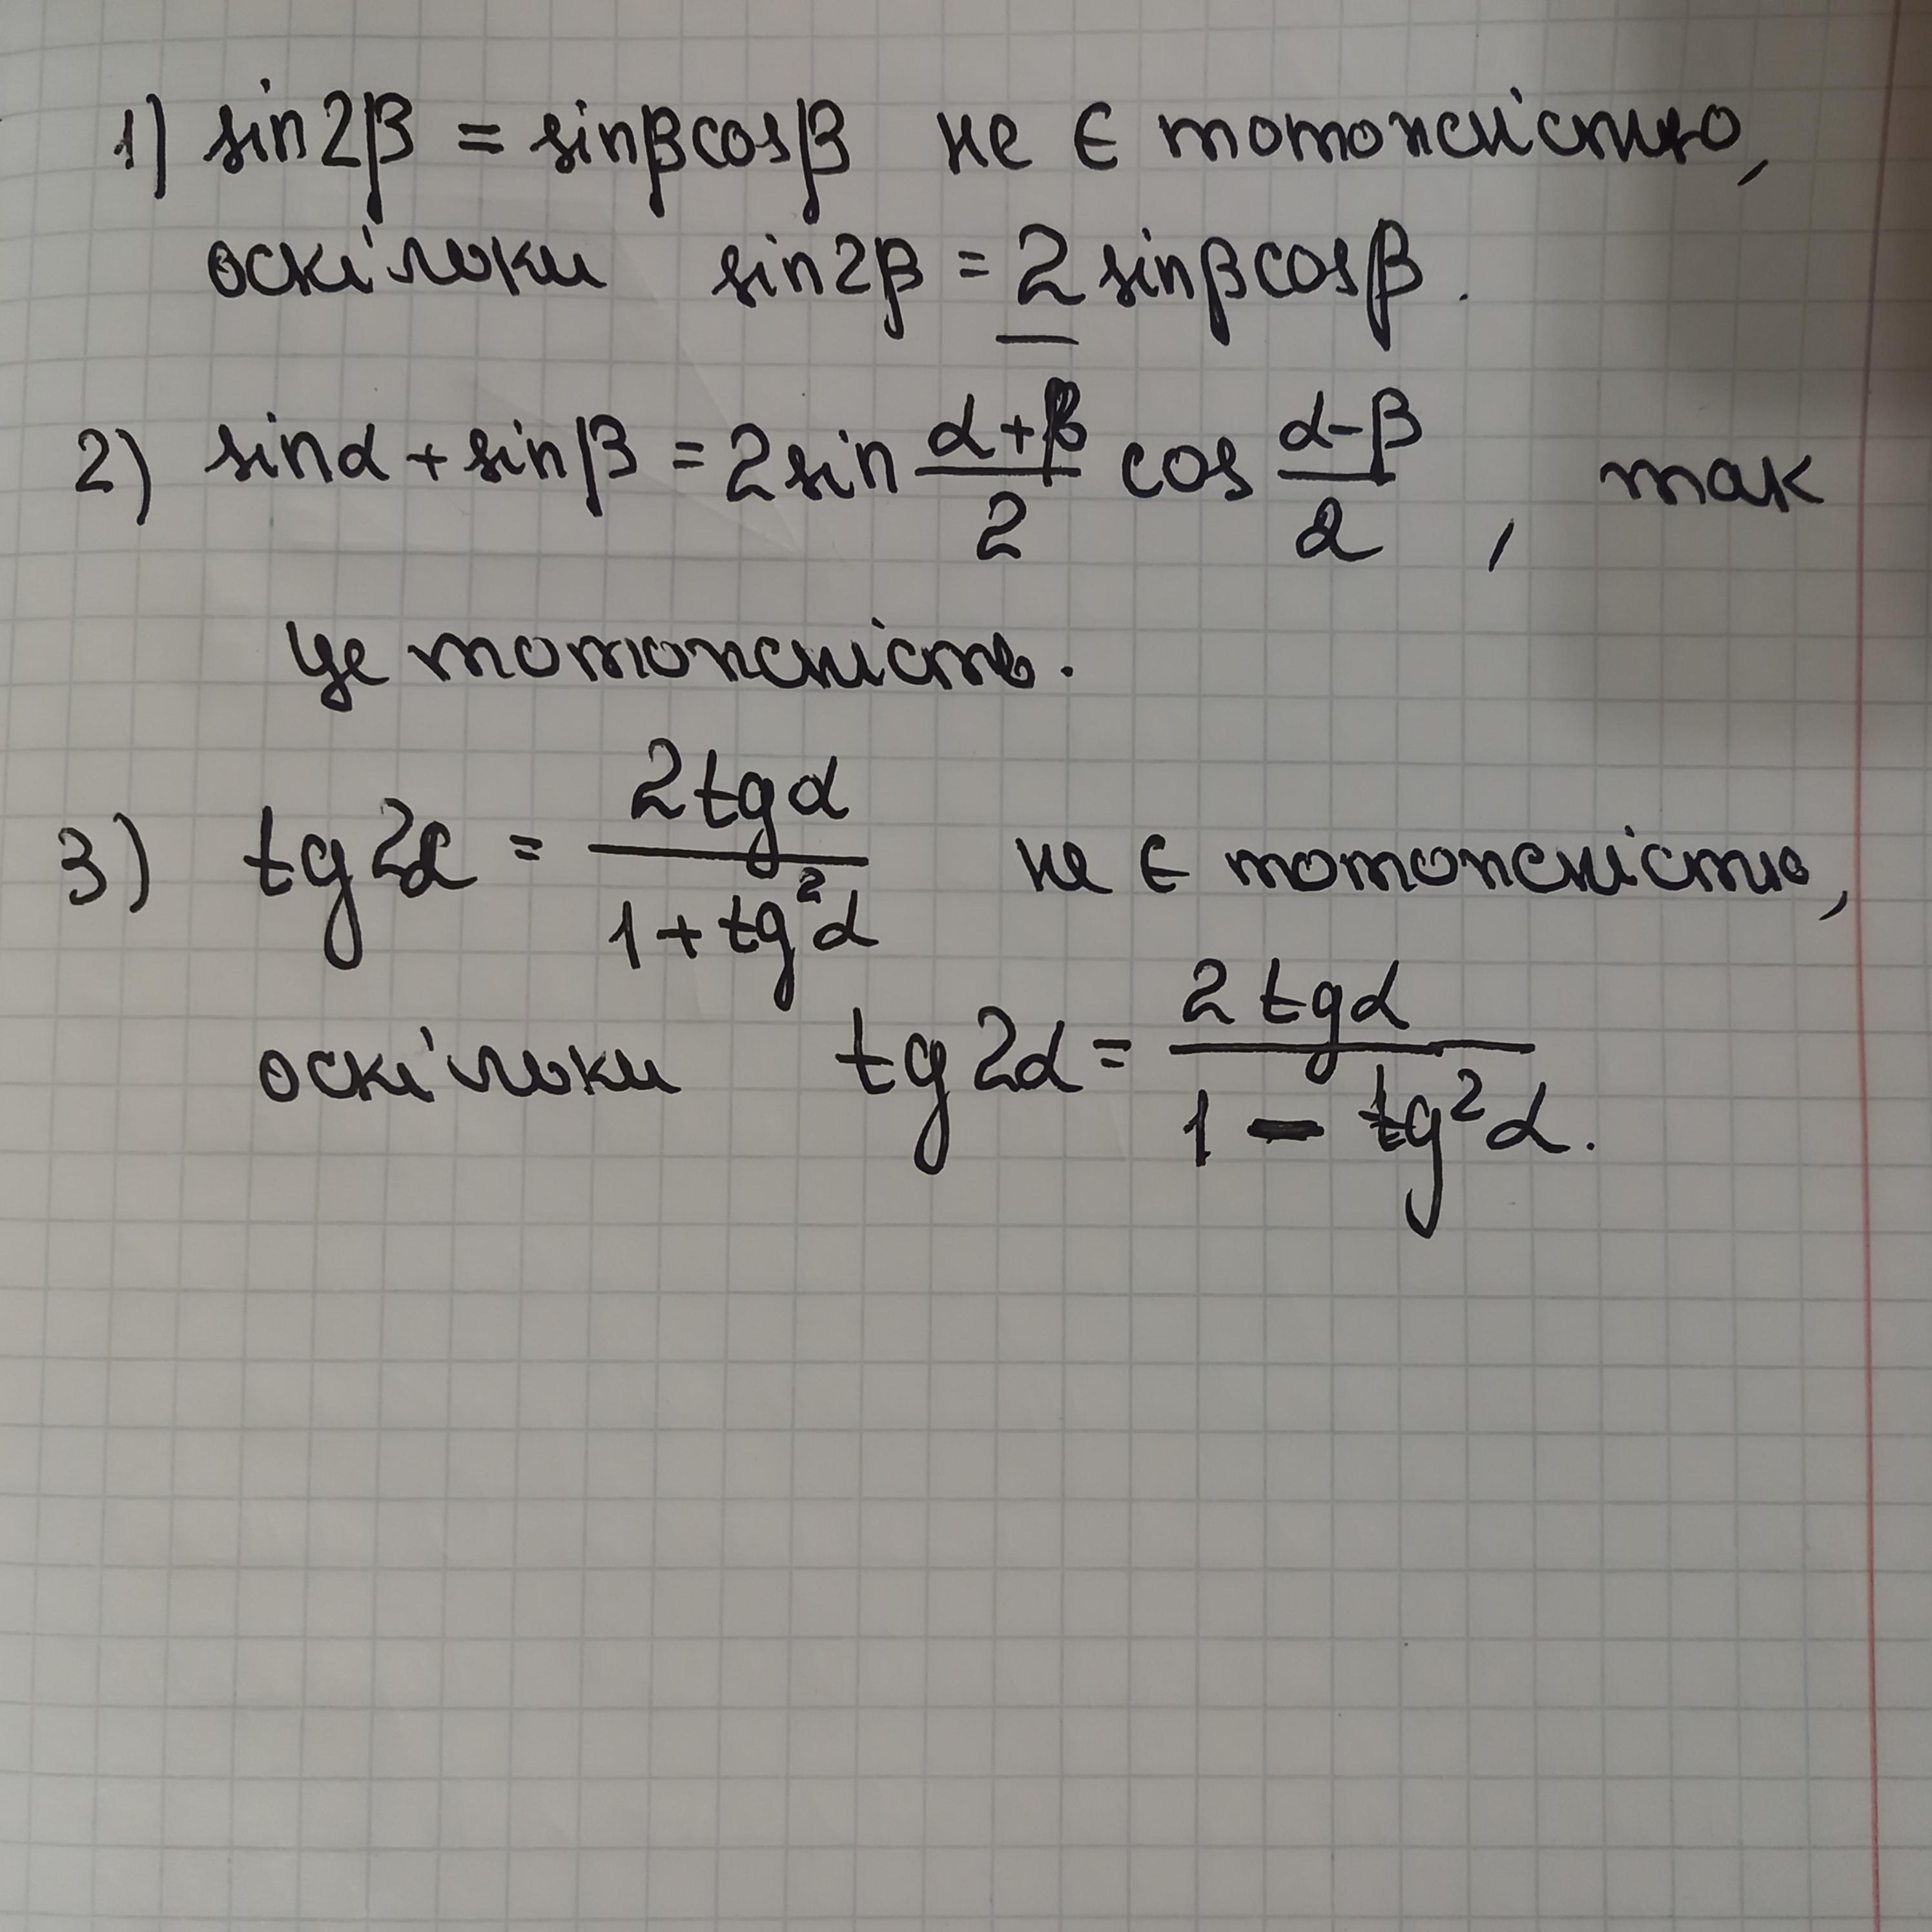 1) sin2β = sinβcosβ не є тотожністю,
оскільки sin2β = 2 sinβcosβ.
2) sinα + sinβ = 2sin (α+β)/2 cos (α-β)/2 , так
це тотожність.
3) tg2α = 2tgα/(1+tg²α) не є тотожністю,
оскільки tg2α = 2tgα/(1 - tg²α).